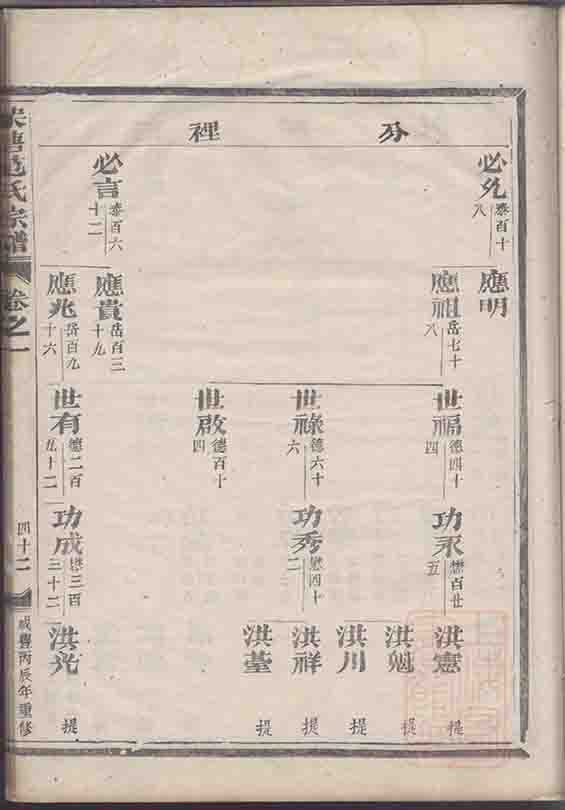 分 裡
必允 泰百十八
必言 泰百六十二
應明
應祖 岳七十八
應貴 岳百三十九
應兆 岳百九十六
世福 德四十四
世祿 德六十六
世啟 德百十四
世有 德二百九十二
功永 懋百廿五
功秀 懋四十二
功成 懋三百三十二
洪憲 提
洪魁 提
洪川 提
洪祥 提
洪臺 提
洪光 提
氏宗譜 卷之一 四十二 咸豐丙辰年重修